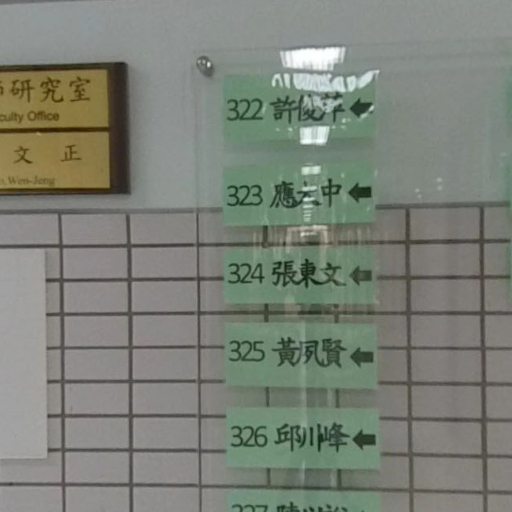 師研究室
culty Office
文 正
Wen-Jeng
322 許俊萍
323 應大中
324 張東文
325 黃夙賢
326 邱川峰
327